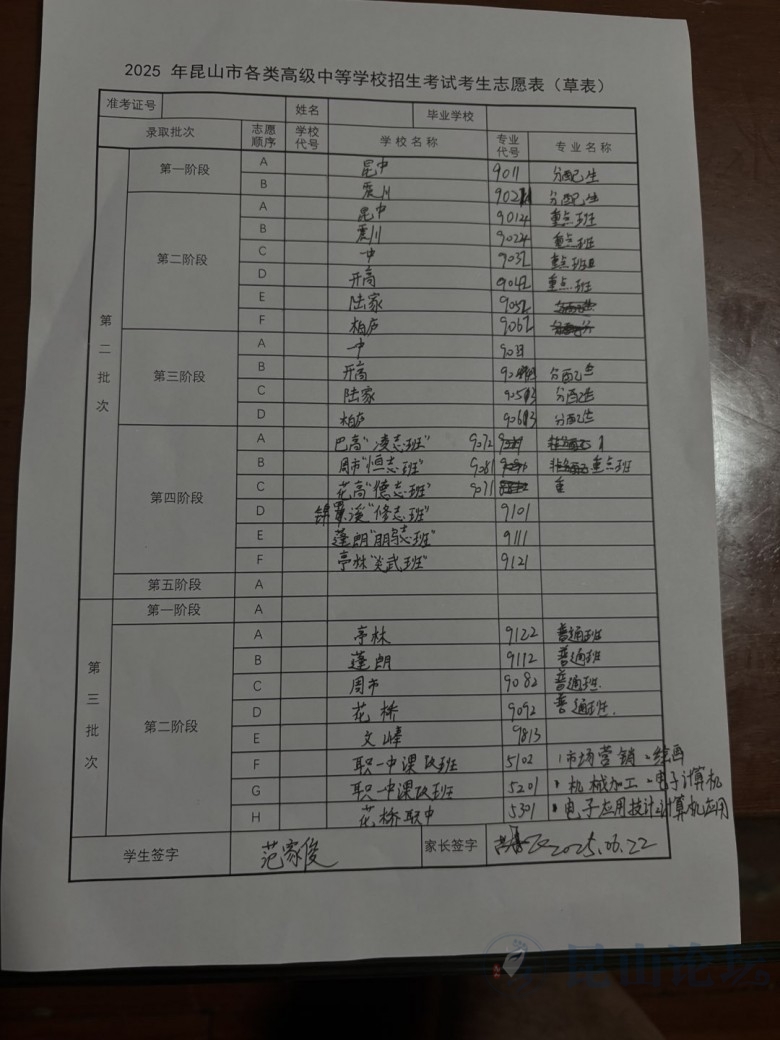 2025 年昆山市各类高级中等学校招生考试考生志愿表（草表）
准考证号 姓名 毕业学校
录取批次 志愿顺序 学校代号 学校名称 专业代号 专业名称
第二批次
第一阶段 A 昆中 9011 分配生
B 震川 902 分配生
第二阶段 A 昆中 9012 重点班
B 震川 9022 重点班
C 一中 9032 重点班
D 开高 9042 重点班
E 陆家 9052
F 柏庐 9062
第三阶段 A 一中
B 开高 分配生
C 陆家 9053 分配生
D 柏庐 9063 分配生
第四阶段 A 巴高"凌志班" 9072
B 周市"恒志班" 9081 重点班
C 花高"德志班" 重
D 锦溪"修志班" 9101
E 蓬朗"朋志班" 9111
F 亭林"炎武班" 9121
第五阶段 A
第三批次
第一阶段 A
第二阶段 A 亭林 9122 普通班
B 蓬朗 9112 普通班
C 周市 9082 普通班.
D 花桥 9092 普通班.
E 文峰 9813
F 职一中课改班 5102 市场营销、绘画
G 职一中课改班 5201 机械加工 电子计算机
H 花桥职中 5301 电子应用技计 计算机应用
学生签字 范家俊 家长签字 2025.06.22
昆山论坛